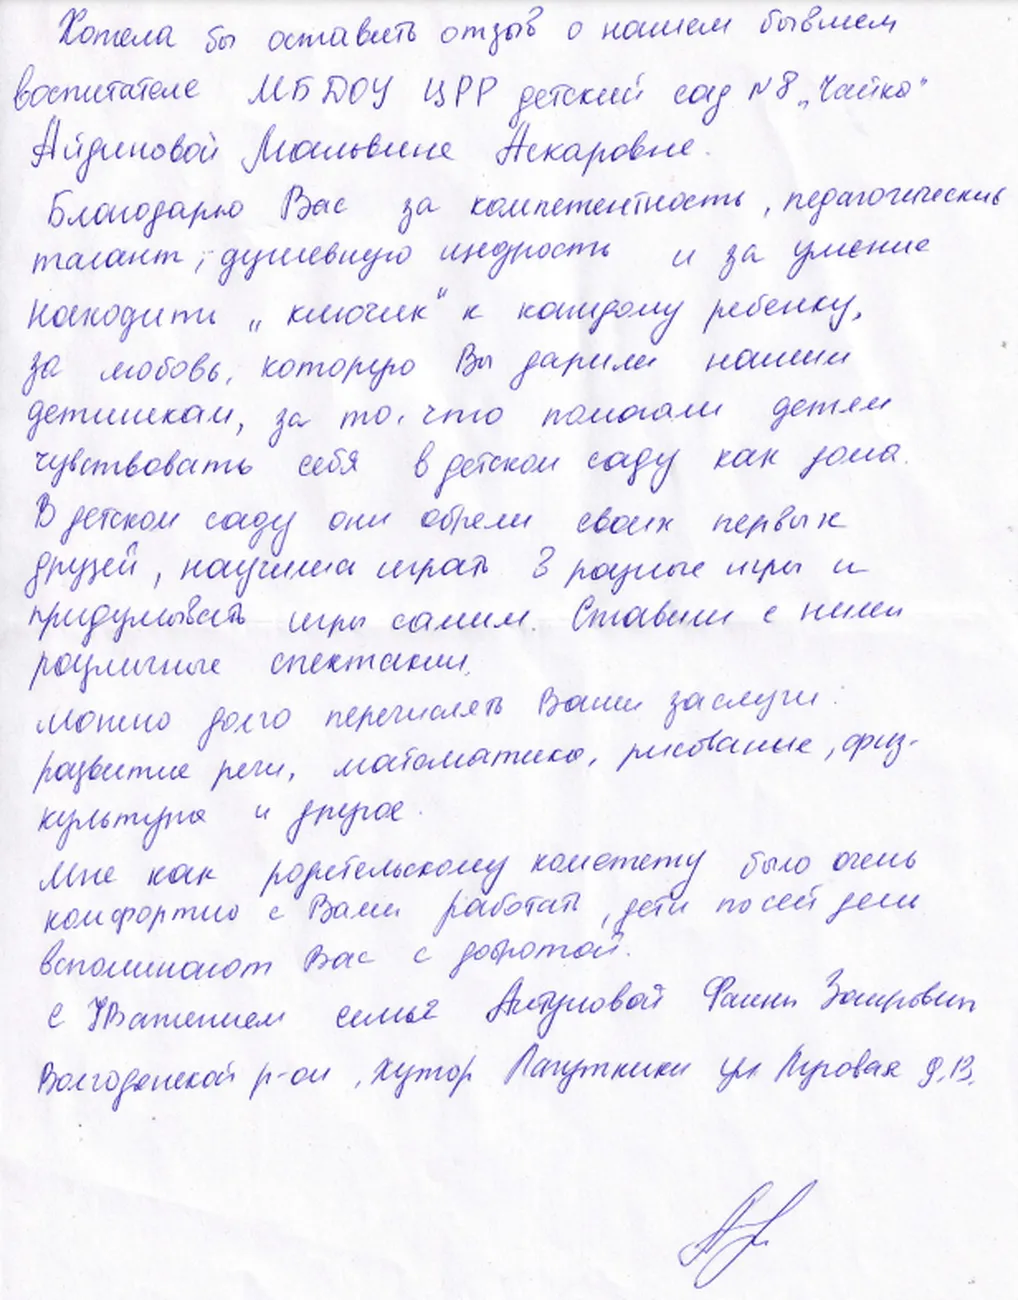 Хотела бы оставить отзыв о нашем бывшем
воспитателе МБДОУ ЦРР детский сад №8 „Чайка"
Айдиновой Мальвине Аскаровне.
Благодарю Вас за компетентность, педагогический
талант, душевную щедрость и за умение
находить „ключик" к каждому ребенку,
за любовь, которую Вы дарили нашим
детишкам, за то, что помогали детям
чувствовать себя в детском саду как дома.
В детском саду они обрели своих первых
друзей, научились играть в разные игры и
придумывать игры самим. Ставили с ними
различные спектакли.
Можно долго перечислять Ваши заслуги:
развитие речи, математика, рисование, физ-
культура и другое.
Мне как родительскому комитету было очень
комфортно с Вами работать, дети по сей день
вспоминают Вас с добротой.
С Уважением семья Фаины Заировны
Волгодонской р-он, хутор Лагутники ул Луговая д.13.